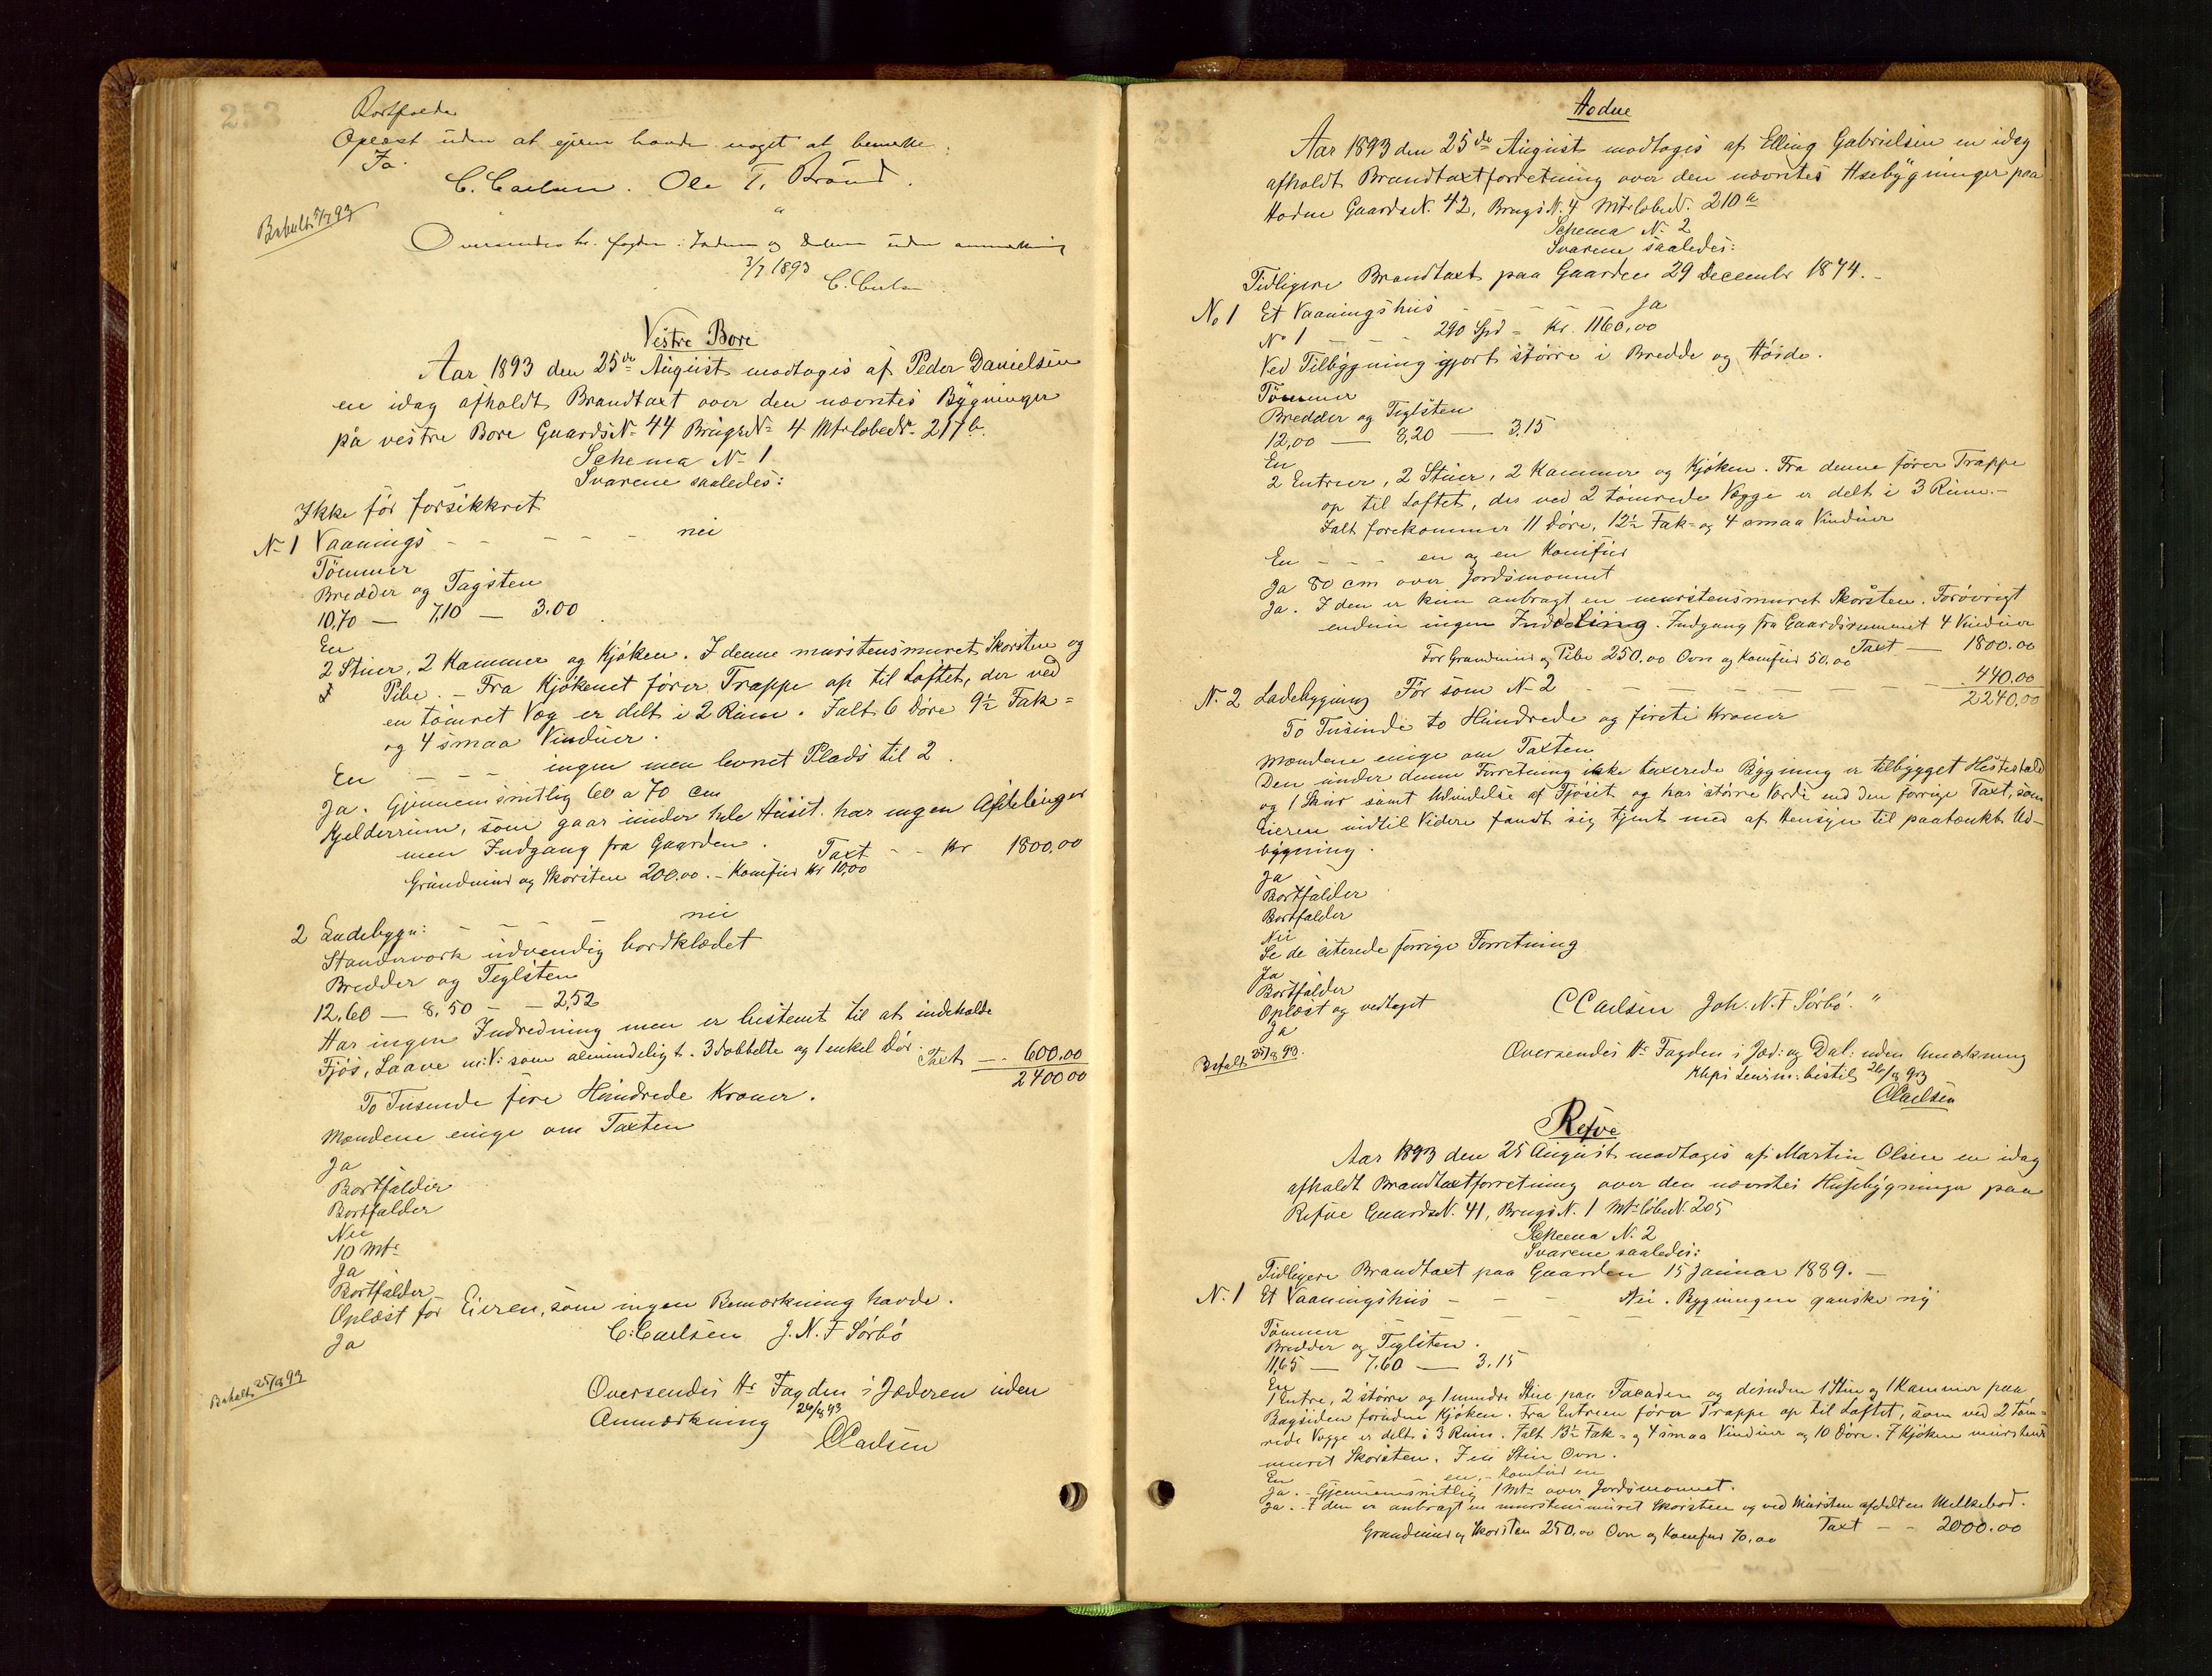 253
Bortfalder
Oplæst uden at ejeren havde noget at bemerke.
Ja
C. Carlsen. Ole T. Braud.
Behalt 5/7 93
Oversendes hr. fogden i Jæderen og Dalerne uden anmærkning
3/7 1893
C. Carlsen
Vestre Bore
Aar 1893 den 25de August modtoges af Peder Danielsen
en idag afholdt Brandtaxt over den nævntes Bygninger
på vestre Bore GaardsN. 44 BrugsN. 4 MtrløbeN. 217b.
Schema N. 1
Svarene saaledes:
Ikke før forsikkret
N. 1 Vaanings - - - - - nei
Tømmer
Bredder og Tagsten
10,70 — 7,10 — 3.00
En
2 Stuer, 2 Kammer og Kjøken. I denne murstensmuret Skorsten og
Pibe. - Fra Kjøkenet fører Trappe op til Loftet, der ved
en tømret Væg er delt i 2 Rum. Ialt 6 Døre 9½ Fak=
og 4 smaa Vinduer.
En - - - ingen men levnet Plads til 2.
Ja. Gjennemsnitlig 60 a 70 cm
Kjelderrum, som gaar under hele Huset. har ingen Afdelinger
men Indgang fra Gaarden. Taxt - - Kr 1800,00
Grundmur og Skorsten 200.00. - Komfur Kr 10,00
2 Ladebygn: - - - nei
Standerværk udvendig bordklædet
Bredder og Teglsten
12,60 — 8,50 — 2,52
Har ingen Indredning men er bestemt til at indeholde
Fjøs, Laave m:V: som almindeligt. 3 dobbelte og 1 enkel Dør. Taxt — 600,00
2400 00
To Tusende fire Hundrede Kroner.
Mændene enige om Taxten
Ja
Bortfalder
Bortfalder
Nei
10 Mtr
Ja
Bortfalder
Oplæst for Eieren, som ingen Bemærkning havde.
Ja
C: Carlsen J. N. F Sørbø
Behalt 25/8 93
Oversendes Hr Fogden i Jæderen uden
Anmærkning 26/8 93
CCarlsen
Hodne
Aar 1893 den 25de August modtoges af Elling Gabrielsen en idag
afholdt Brandtaxtforretning over den nævntes Husebygninger paa
Hodne GaardsN. 42, BrugsN. 4 MtrløbeN. 210a
Schema N. 2
Svarene saaledes:
Tidligere Brandtaxt paa Gaarden 29 December 1874. -
No 1 Et Vaaningshus - - - - Ja
No 1 - - - 290 Spd = Kr. 1160,00
Ved Tilbygning gjort større i Bredde og Høide.
Tømmer
Bredder og Teglsten
12,00 — 8,20 — 3,15
En
2 Entreer, 2 Stuer, 2 Kammer og Kjøken. Fra denne fører Trappe
op til Loftet, der ved 2 tømrede Vægge er delt i 3 Rum. -
Ialt forekommer 11 Døre, 12½ Fak= og 4 smaa Vinduer
En - - - en og en Komfur
Ja 80 cm over Jordsmonnet
Ja. I den er kun anbragt en murstensmuret Skorsten. Forøvrigt
endnu ingen Inddeling. Indgang fra Gaardsrummet 4 Vinduer
Taxt — 1800.00
For Grundmur og Pibe 250,00 Ovn og Komfur 50.00
N. 2 Ladebygning Før som N. 2 - - - - - - 440.00
2240,00
To Tusinde to Hundrede og firti Kroner
Mændene enige om Taxten
Den under denne Forretning ikke taxerede Bygning er tilbygget Hestestald
og 1 Skur samt Udvidelse af Fjøset og har større Værdi end den forrige Taxt, som
Eieren indtil Videre fandt sig tjent med af Hensyn til paatænkt Ud-
bygning.
Ja
Bortfalder
Bortfalder
Nei
Se de citerede forrige Forretning
Ja
Bortfalder
Oplæst og vedtaget
Ja
CCarlsen Joh. N. F Sørbø. "
Behalt 25/8 93.
Oversendes Hr Fogden i Jæd: og Dal: uden Anmærkning
Klepp Lensm: bestil 26/8 93
CCarlsen
Refve
Aar 1893 den 25 August modtoges af Martin Olsen en idag
afholdt Brandtaxtforretning over den nævntes Husebygninger paa
Refve GaardsN. 41, BrugsN. 1 MtrløbeN. 205
Schema N. 2
Svarene saaledes:
Tidligere Brandtaxt paa Gaarden 15 Januar 1889. -
N. 1 Et Vaaningshus - - - Nei. Bygningen ganske ny
Tømmer
Bredder og Teglsten.
11,65 — 7.60 — 3.15
En
1 Entre, 2 større og 1 mindre Stue paa Facaden og desuden 1 Stue og 1 Kammer paa
Bagsiden foruden Kjøken. Fra Entreen fører Trappe op til Loftet, som ved 2 tøm=
rede Vægge er delt i 3 Rum. Ialt 13½ Fak= og 4 smaa Vinduer og 10 Døre. I Kjøken murstens
muret Skorsten. I en Stue Ovn.
En - - - en, - Komfur en
Ja. - Gjennemsnitlig 1 Mtr over Jordsmonnet.
Ja. - I den er anbragt en murstensmuret Skorsten og ved Mursten afdelt en Melkebod.
Grundmur og Skorsten 250,00 Ovn og Komfur 70,00 Taxt - - 2000.00